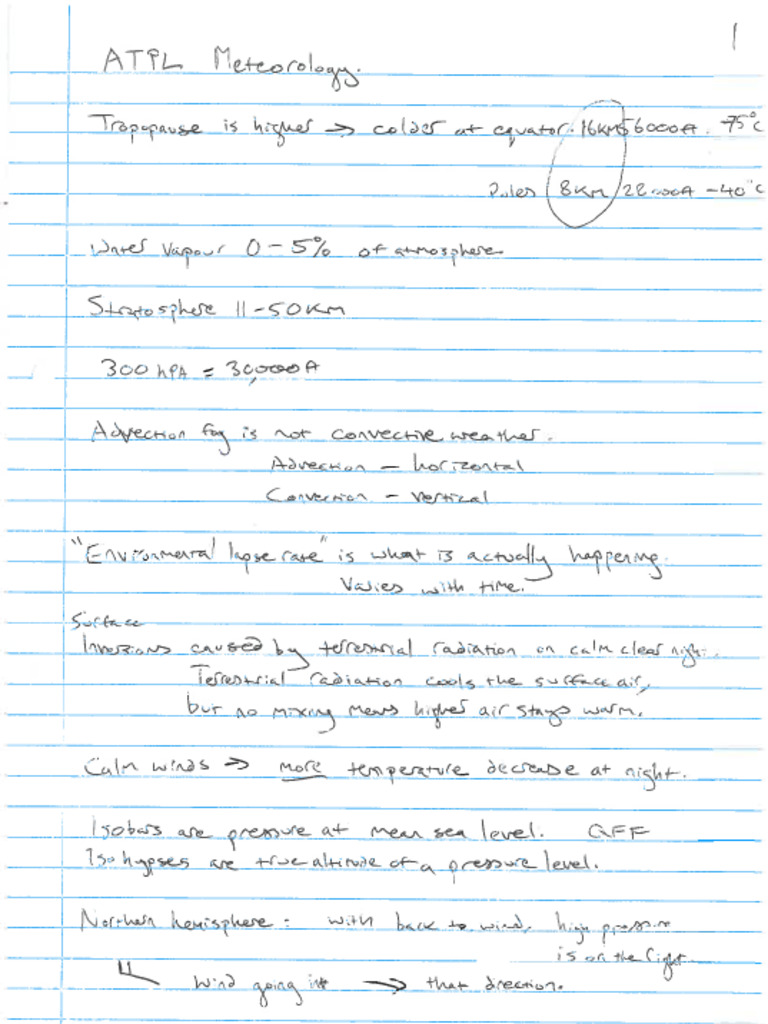 1
ATPL Meteorology.
Tropopause is higher → colder at equator. 16KM 56000ft. -75°C
Poles 8KM 28000ft -40°C
Water Vapour 0-5% of atmosphere.
Stratosphere 11-50KM
300 hPA = 30,000ft
Advection fog is not convective weather.
Advection - horizontal
Convection - vertical
"Environmental lapse rate" is what is actually happening.
Varies with time.
Surface
Inversions caused by terrestrial radiation on calm clear night.
Terrestrial radiation cools the surface air,
but no mixing means higher air stays warm.
Calm winds → more temperature decrease at night.
Isobars are pressure at mean sea level. QFF
Isohypses are true altitude of a pressure level.
Northern hemisphere: with back to wind, high pressure
is on the right.
Wind going in → that direction.